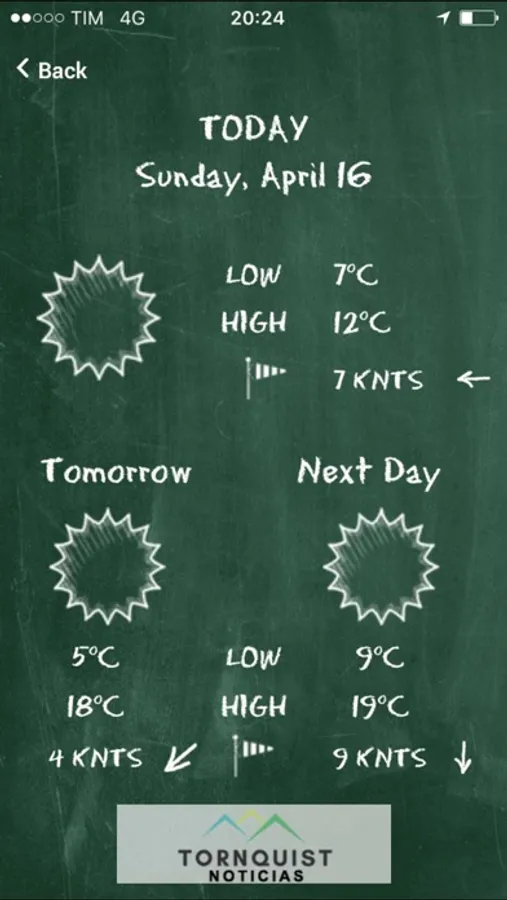 TIM 4G 20:24
Back
TODAY
Sunday, April 16
LOW 7°C
HIGH 12°C
7 KNTS
Tomorrow Next Day
5°C LOW 9°C
18°C HIGH 19°C
4 KNTS 9 KNTS
TORNQUIST
NOTICIAS